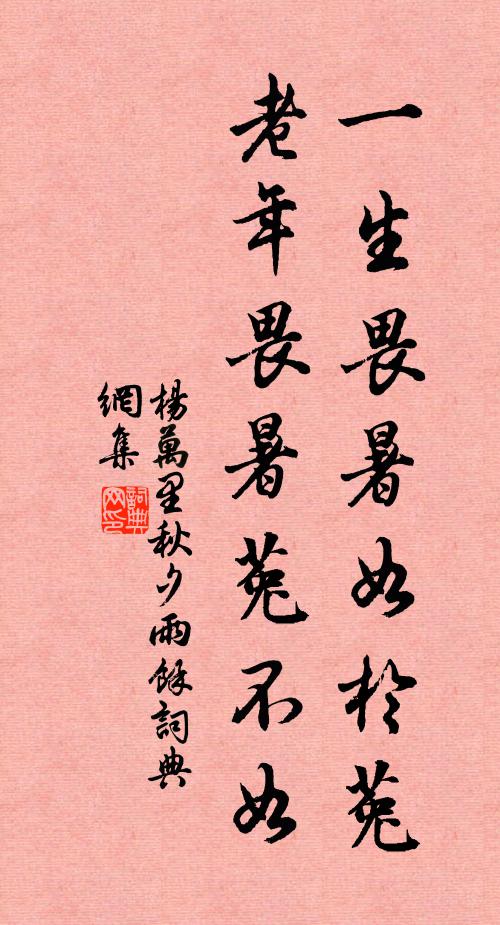 一生畏暑如於菟
老年畏暑菟不如
楊萬里秋夕雨餘詞典
網集
詞典网印